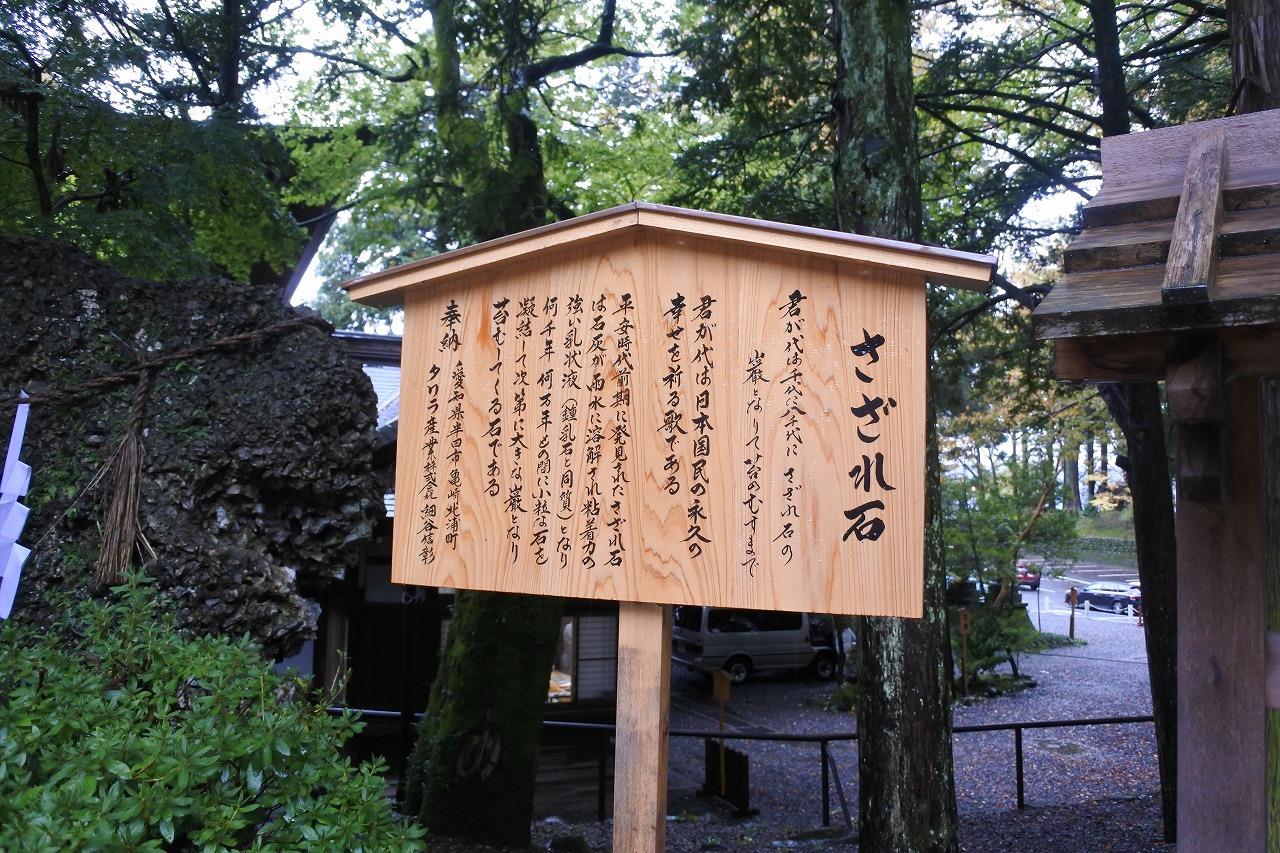 さざれ石
君が代は千代に八千代に さざれ石の
巌となりて苔のむすまで
君が代は日本国民の永久の
幸せを祈る歌である
平安時代前期に発見されたさざれ石
は石灰が雨水に溶解され粘着力の
強い乳状液（鍾乳石と同質）となり
何千年 何万年との間に小粒な石を
凝結して次第に大きな巌となり
苔むしてくる石である
奉納 愛知県半田市亀崎北浦町
タワラ産業株式会社 細谷信彰